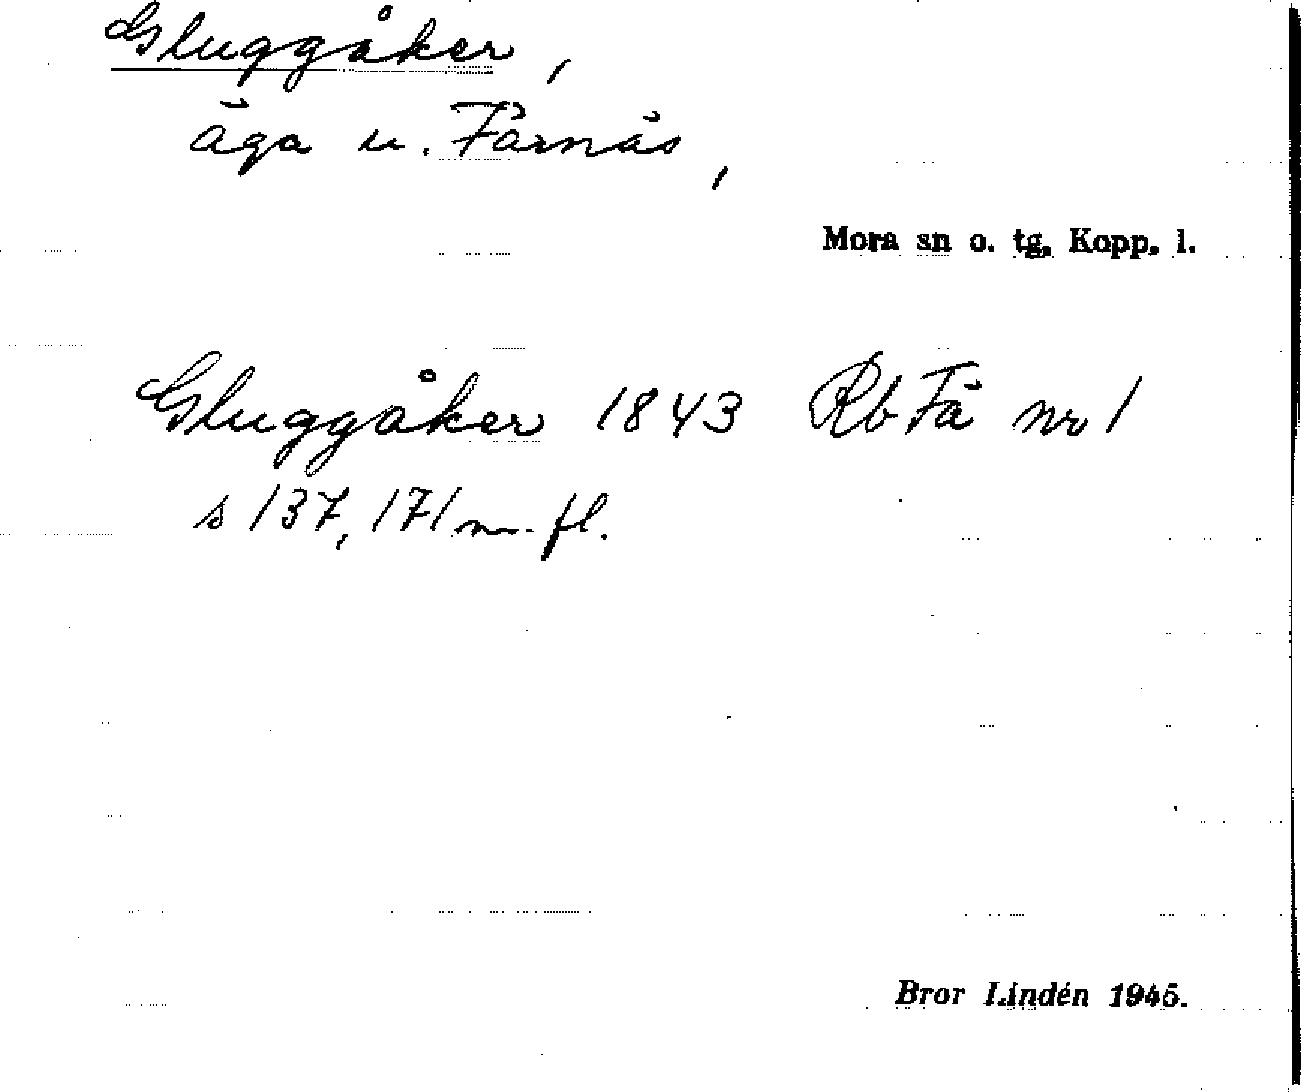 Gluggåker,
äga u. Färnäs,
Mora sn o. tg. Kopp. l.
Gluggåker 1843 Rb Fä nr 1
s 137, 171 m. fl.
Bror Lindén 1945.